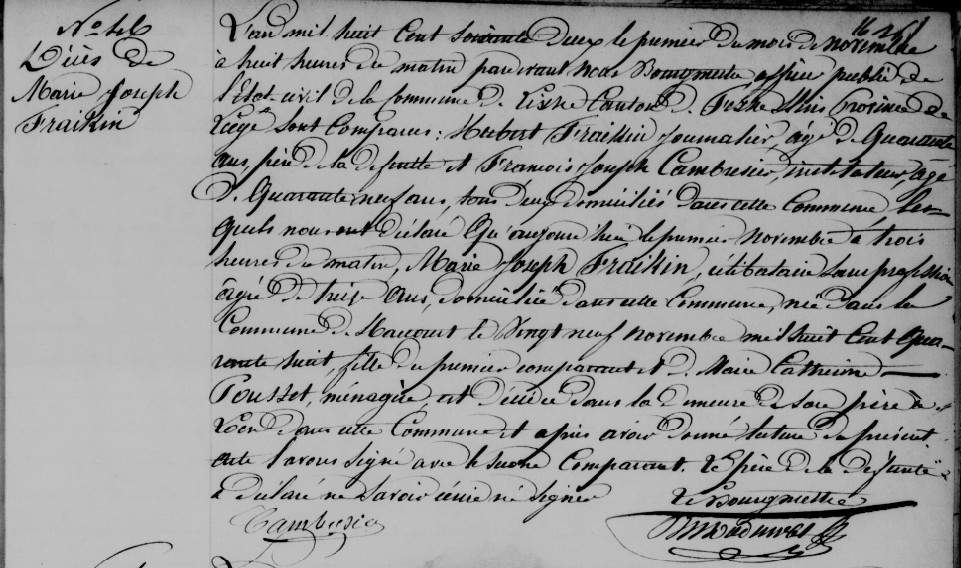 Décès de
Marie Joseph
Fraikin
L'an mil huit Cent soixante deux le premier du mois de novembre
à huit heures du matin pardevant nous Bourgmestre officier public de
l'Etat-civil de la Commune de Lixhe Canton de Province de
Liége sont Comparus: Hubert Fraikin journalier, agé de Quarante
ans, père de la défunte et François Joseph Cambresier, instituteur, agé
de Quarante neuf ans, tous deux domiciliés dans cette Commune Les-
quels nous ont déclaré Qu'aujourd'hui, le premier novembre à trois
heures du matin, Marie Joseph Fraikin, célibataire sans profession
agée de treize ans, domiciliée dans cette Commune, née dans la
Commune de Haccourt le Vingt neuf novembre mil huit Cent Qua-
rante huit, fille du premier comparant et de Marie Catherine
Pousset, ménagère, est décédée dans la demeure de son père à
dans cette Commune et après avoir donné lecture du présent
acte l'avons signé avec le second Comparant. Le père de la défunte
a déclaré ne savoir écrire ni signer
Le Bourgmestre
Cambresier